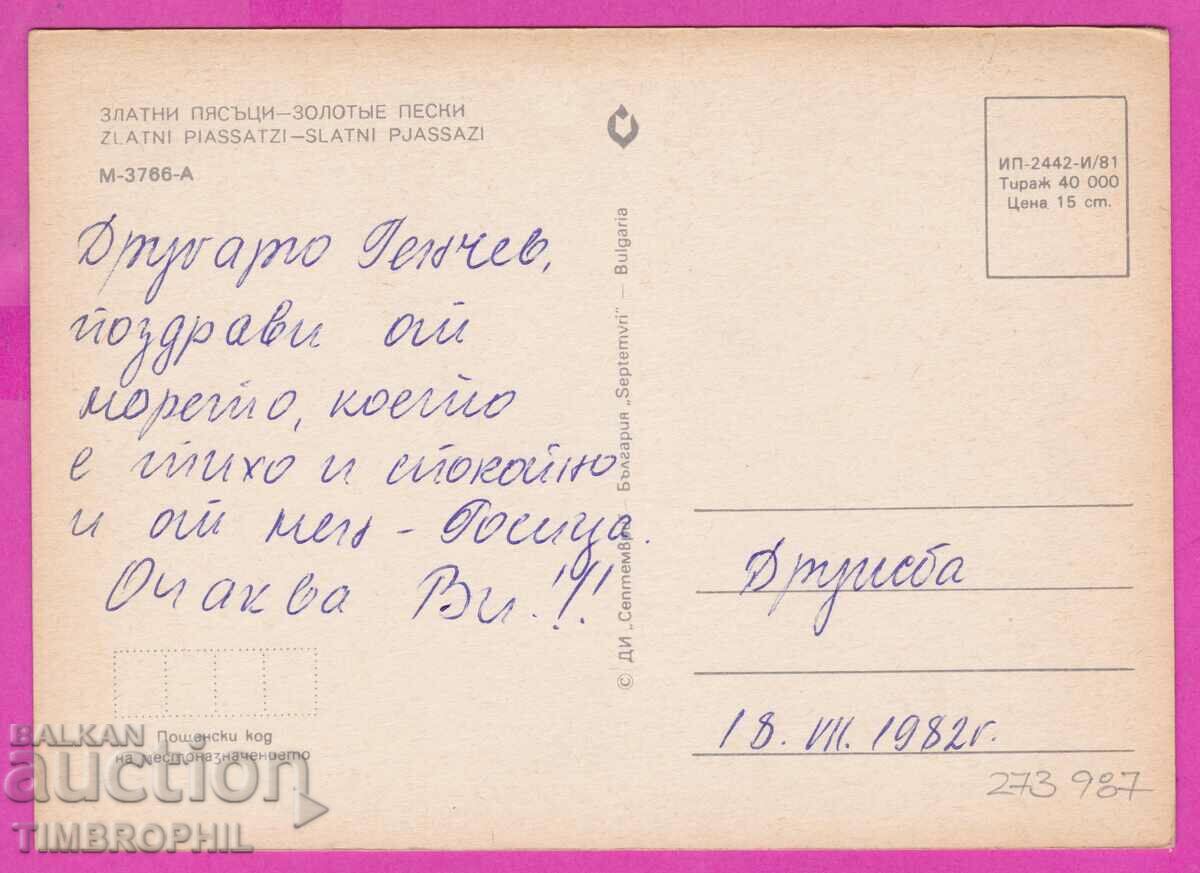 ЗЛАТНИ ПЯСЪЦИ—ЗОЛОТЫЕ ПЕСКИ
ZLATNI PIASSATZI—SLATNI PJASSAZI
М-3766-А
Другарю Генчев,
поздрави от
морето, което
е тихо и спокойно
и от мен - Росица.
Очаква Ви!!!
Пощенски код
на местоназначението
© ДИ „Септември" — България „Septemvri" — Bulgaria
ИП-2442-И/81
Тираж 40 000
Цена 15 ст.
Дружба
18. VII. 1982г.
273 987
BALKAN
auction
TIMBROPHIL